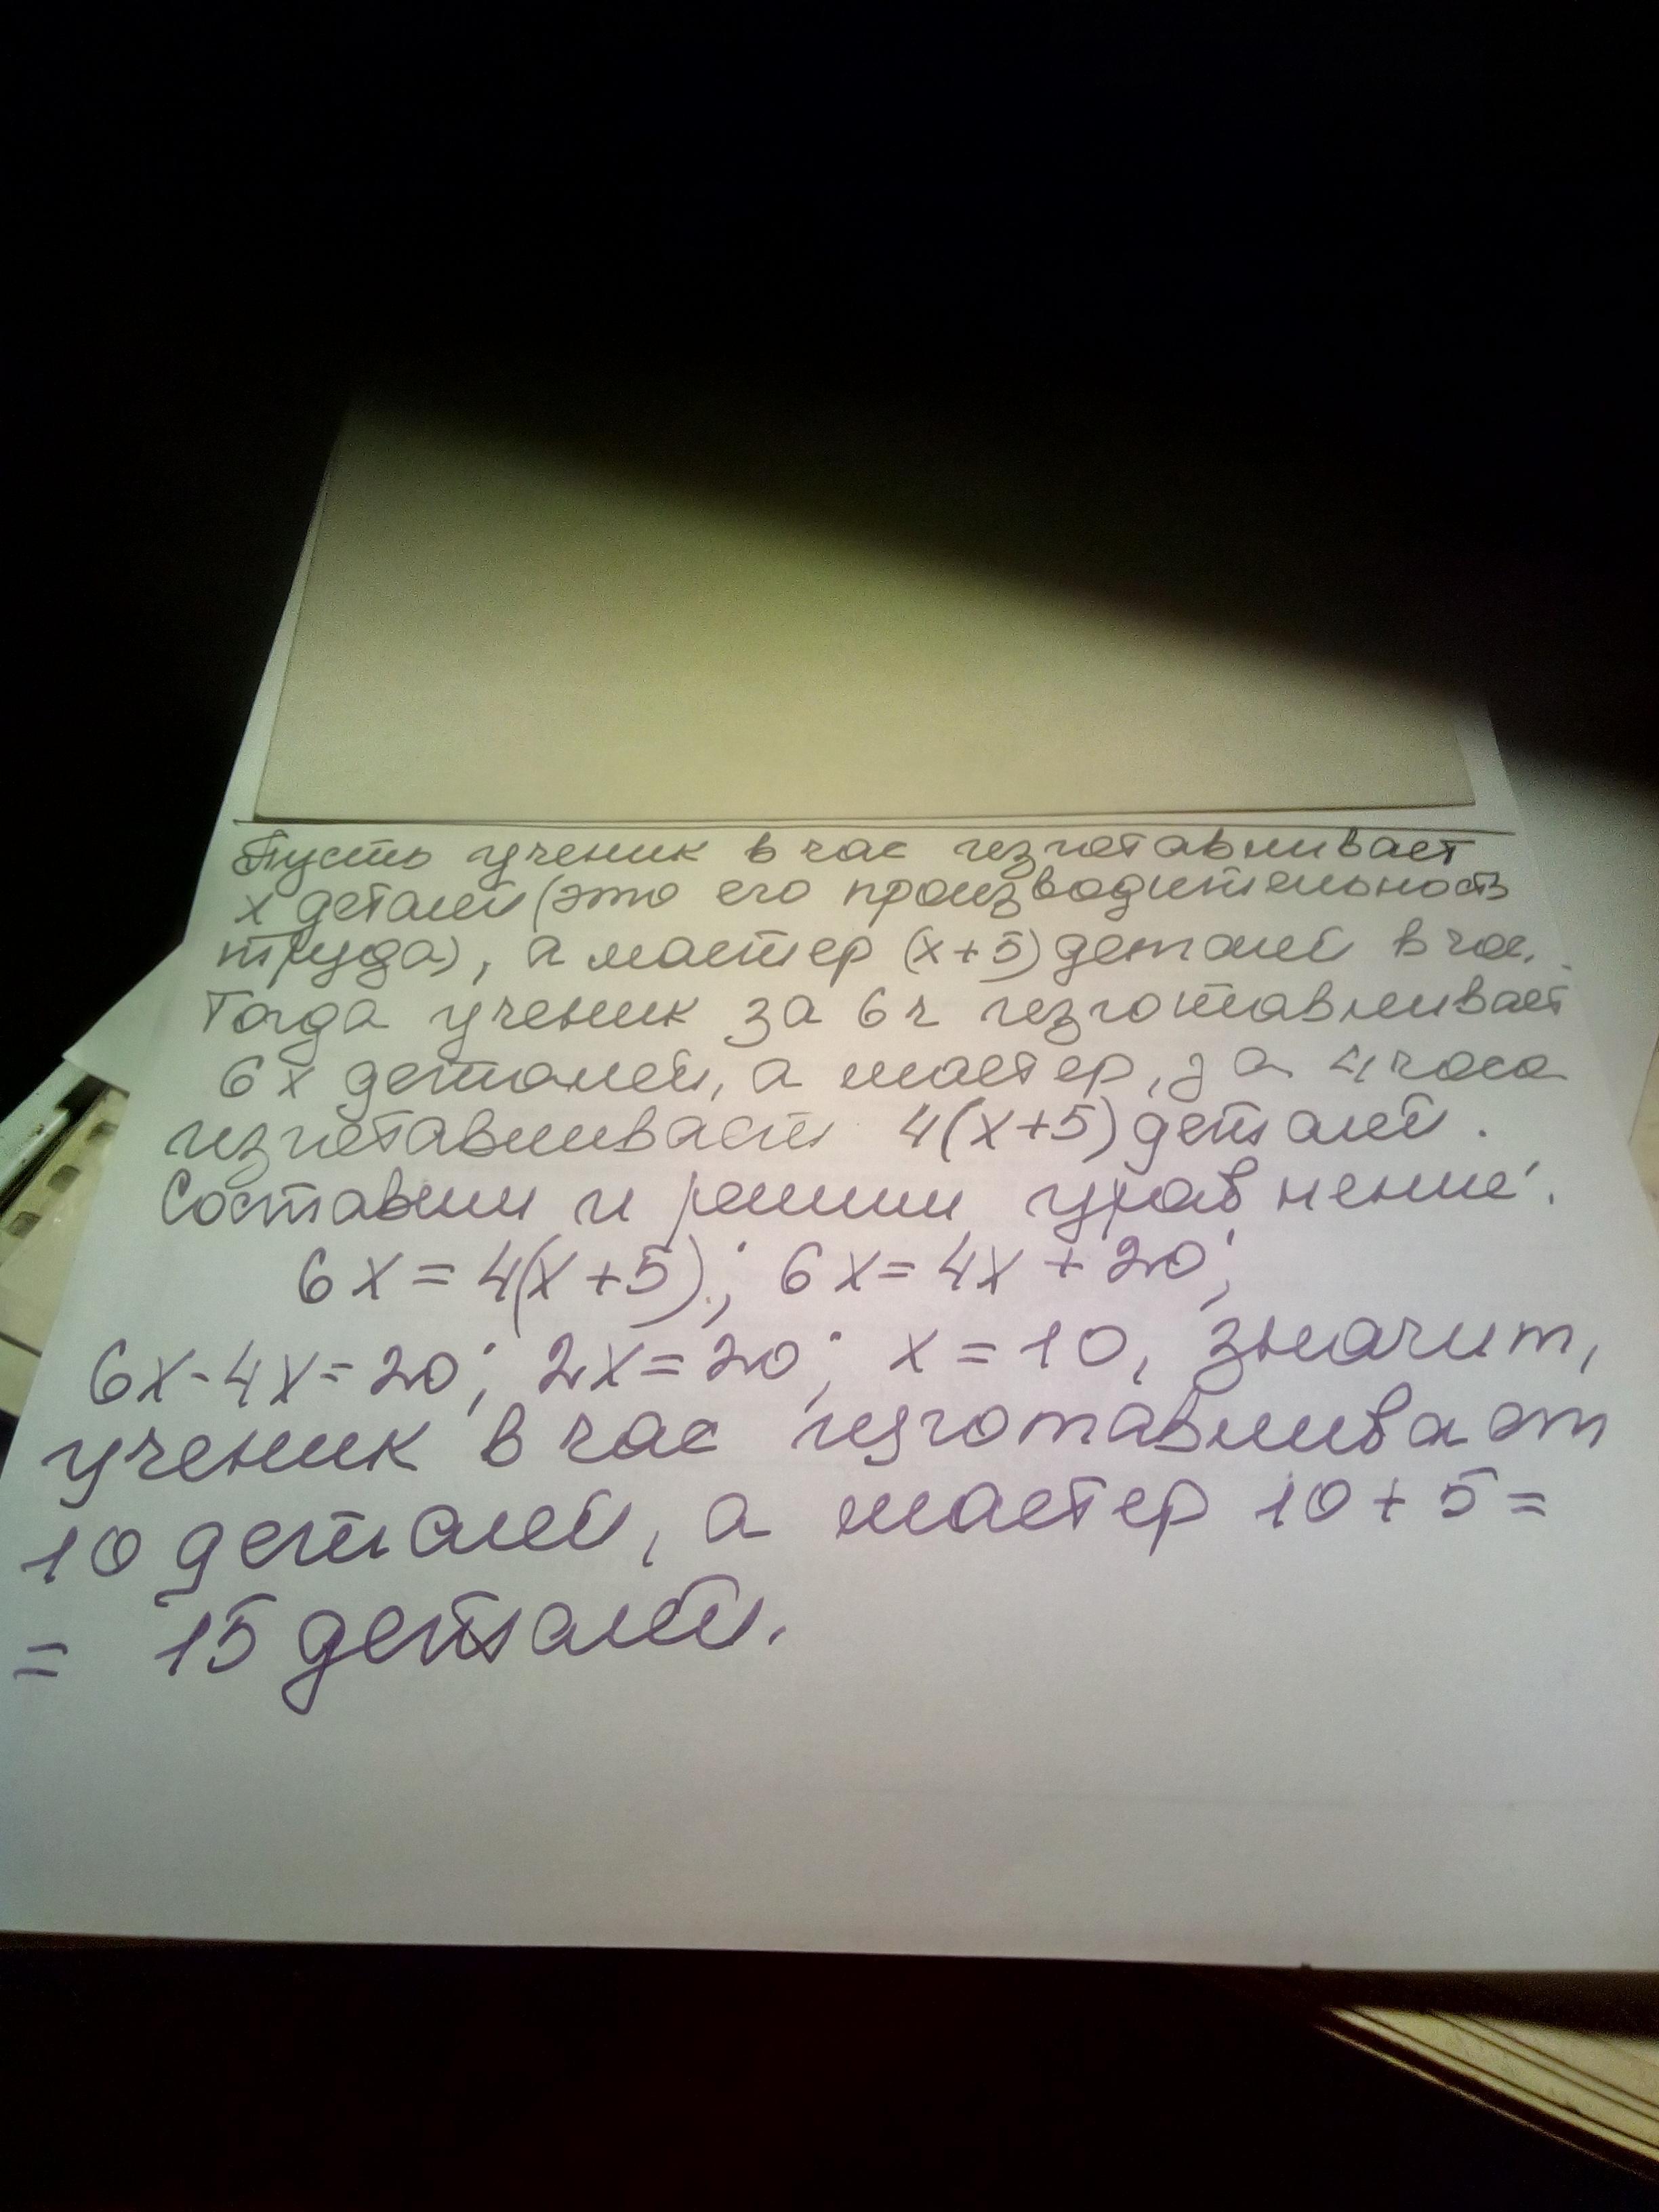 Пусть ученик в час изготавливает
х деталей (это его производительность
труда), а мастер (х+5) деталей в час.
Тогда ученик за 6 ч изготавливает
6х деталей, а мастер, за 4 часа
изготавливает 4(х+5) деталей.
Составим и решим уравнение:
6х=4(х+5); 6х=4х+20;
6х-4х=20; 2х=20; х=10, значит,
ученик в час изготавливает
10 деталей, а мастер 10+5=
= 15 деталей.